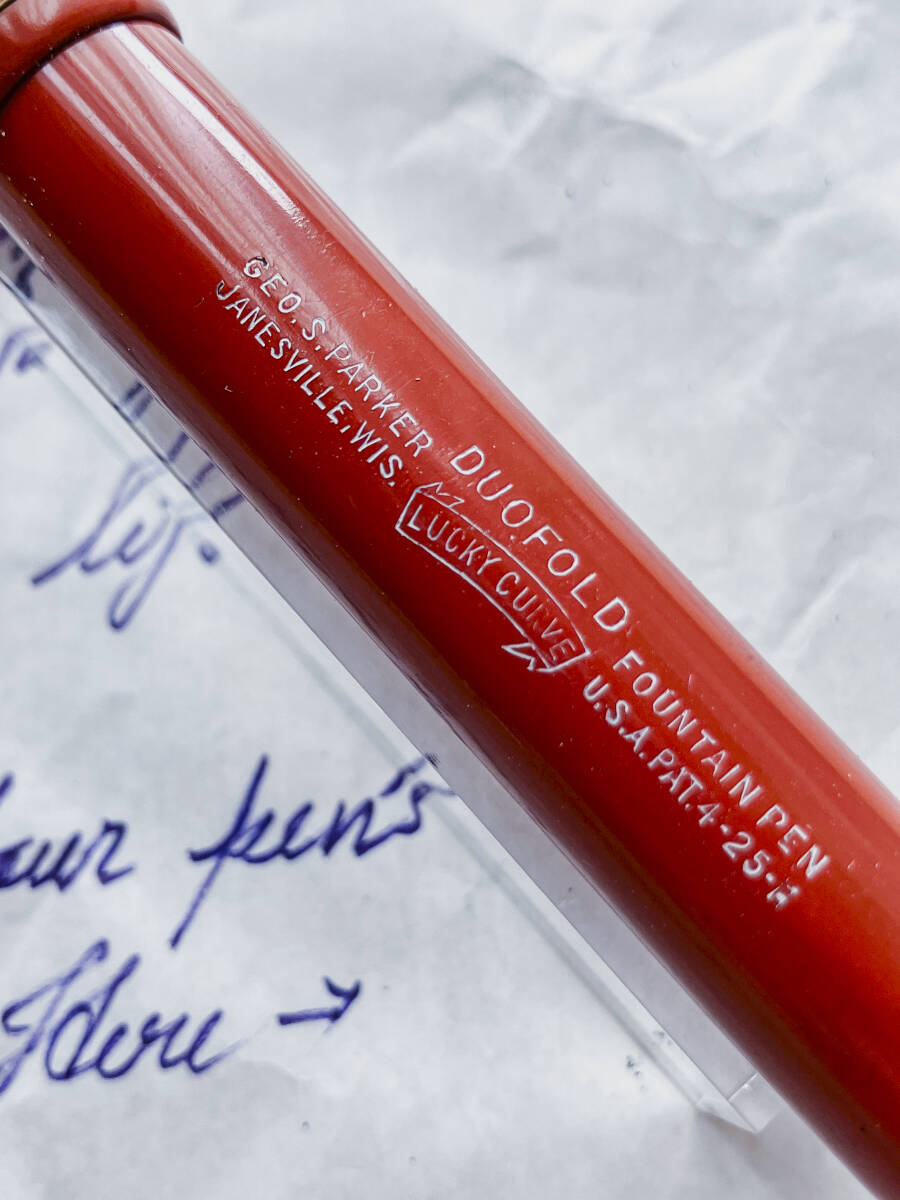 GEO. S. PARKER
JANESVILLE, WIS.
DUOFOLD
LUCKY CURVE
FOUNTAIN PEN
U.S.A. PAT. 4-25-11
pen's
Here →